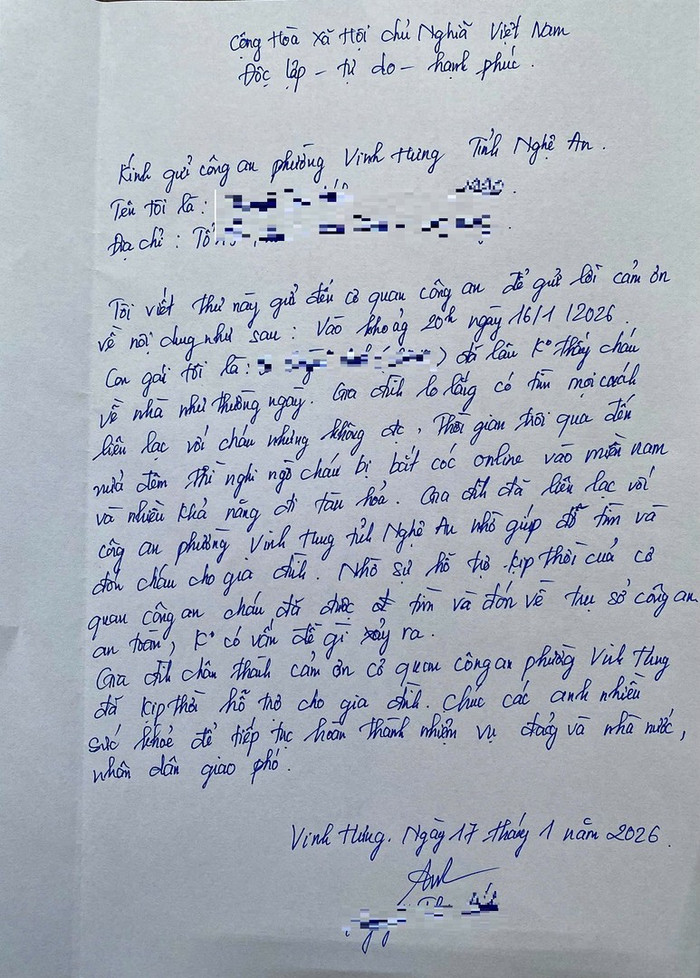 Cộng Hoà Xã Hội chủ Nghĩa Việt Nam
Độc lập - tự do - hạnh phúc.
Kính gửi công an phường Vinh Hưng Tỉnh Nghệ An.
Tên tôi là :
Địa chỉ : Tổ
Tôi viết thư này gửi đến cơ quan công an để gửi lời cảm ơn
về nội dung như sau : Vào khoảg 20h ngày 16/1/2026.
Con gái tôi là : ) đã lâu K° thấy cháu
về nhà như thường ngay. Gia đình lo lắng có tìm mọi cách
liên lạc với cháu nhưng không đc, Thời gian trôi qua đến
nửa đêm thì nghi ngờ cháu bị bắt cóc online vào miền nam
và nhiều khả năng đi tàu hoả. Gia đình đã liên lạc với
công an phường Vinh Hưng tỉnh Nghệ An nhờ giúp đỡ tìm và
đón cháu cho gia đình. Nhờ sự hỗ trợ kịp thời của cơ
quan công an cháu đã được tìm và đón về trụ sở công an
an toàn, K° có vấn đề gì xảy ra.
Gia đình chân thành cảm ơn cơ quan công an phường Vinh Hưng
đã kịp thời hỗ trợ cho gia đình. Chúc các anh nhiều
sức khoẻ để tiếp tục hoàn thành nhiệm vụ đảng và nhà nước,
nhân dân giao phó.
Vinh Hưng. Ngày 17 tháng 1 năm 2026.
Anh